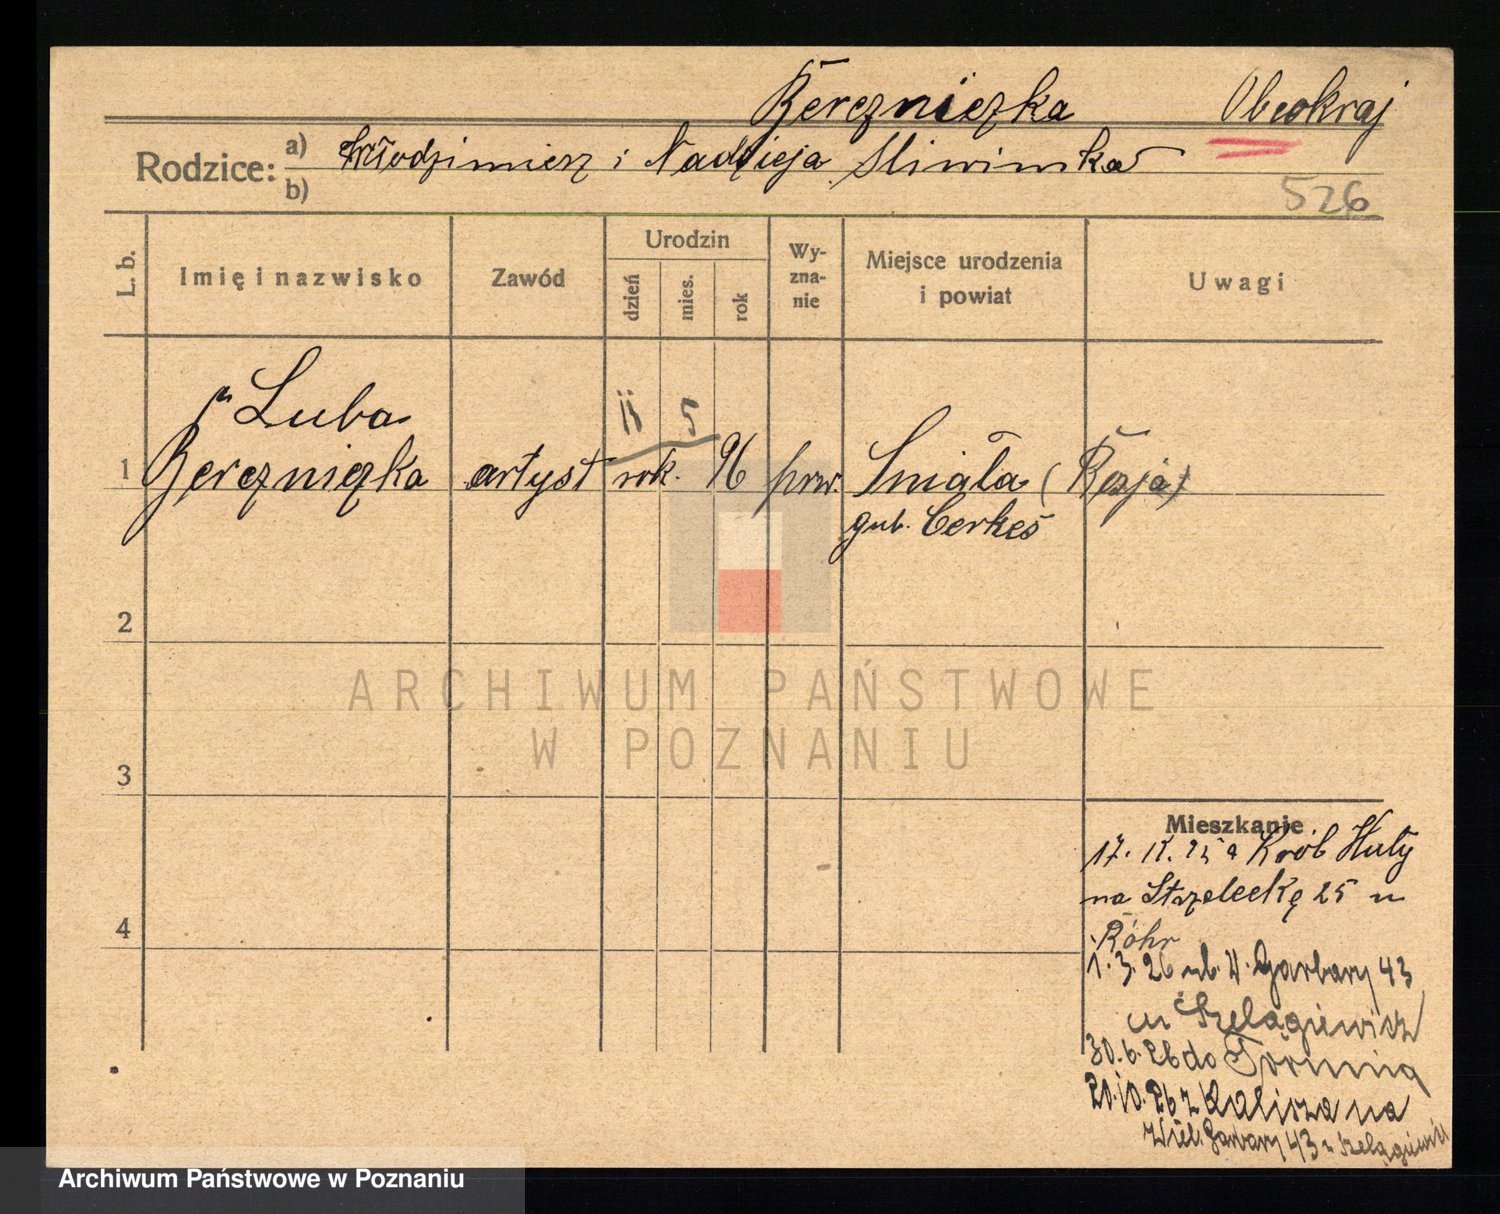 Berezniezka Obcokraj
Rodzice: a) Włodzimierz i Nadzieja Sliwinska
b)
526
L. b. Imię i nazwisko Zawód Urodzin dzień mies. rok Wy-zna-nie Miejsce urodzenia i powiat Uwagi
Luba
5
1 Berezniezka artyst rok. 96 prw. Smiała (Rosja)
gub. Cerkes
2
3
4
Mieszkanie
17. Król Huty
na Strzelecką 25 u
Röhr
1.3.26 W. Garbary 43
u Szelągiewicz
30.6.26 do Torunia
20.10.26 z Kalisza na
Wiel. Garbary 43 u Szelągiewicz
ARCHIWUM PAŃSTWOWE
W POZNANIU
Archiwum Państwowe w Poznaniu